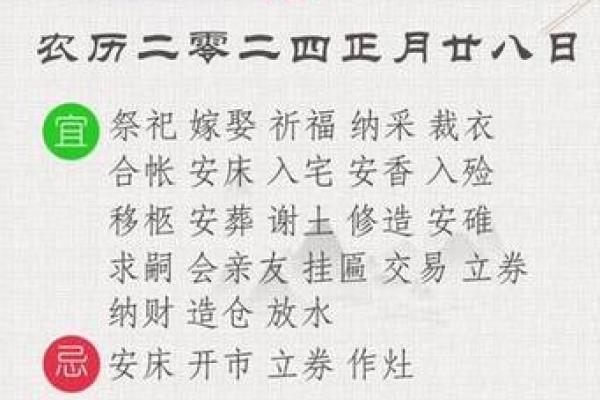 农历二零二四正月廿八日
宜 祭祀 嫁娶 祈福 纳采 裁衣
合帐 安床 入宅 安香 入殓
移柩 安葬 谢土 修造 安碓
求嗣 会亲友 挂匾 交易 立券
纳财 造仓 放水
忌 安床 开市 立券 作灶